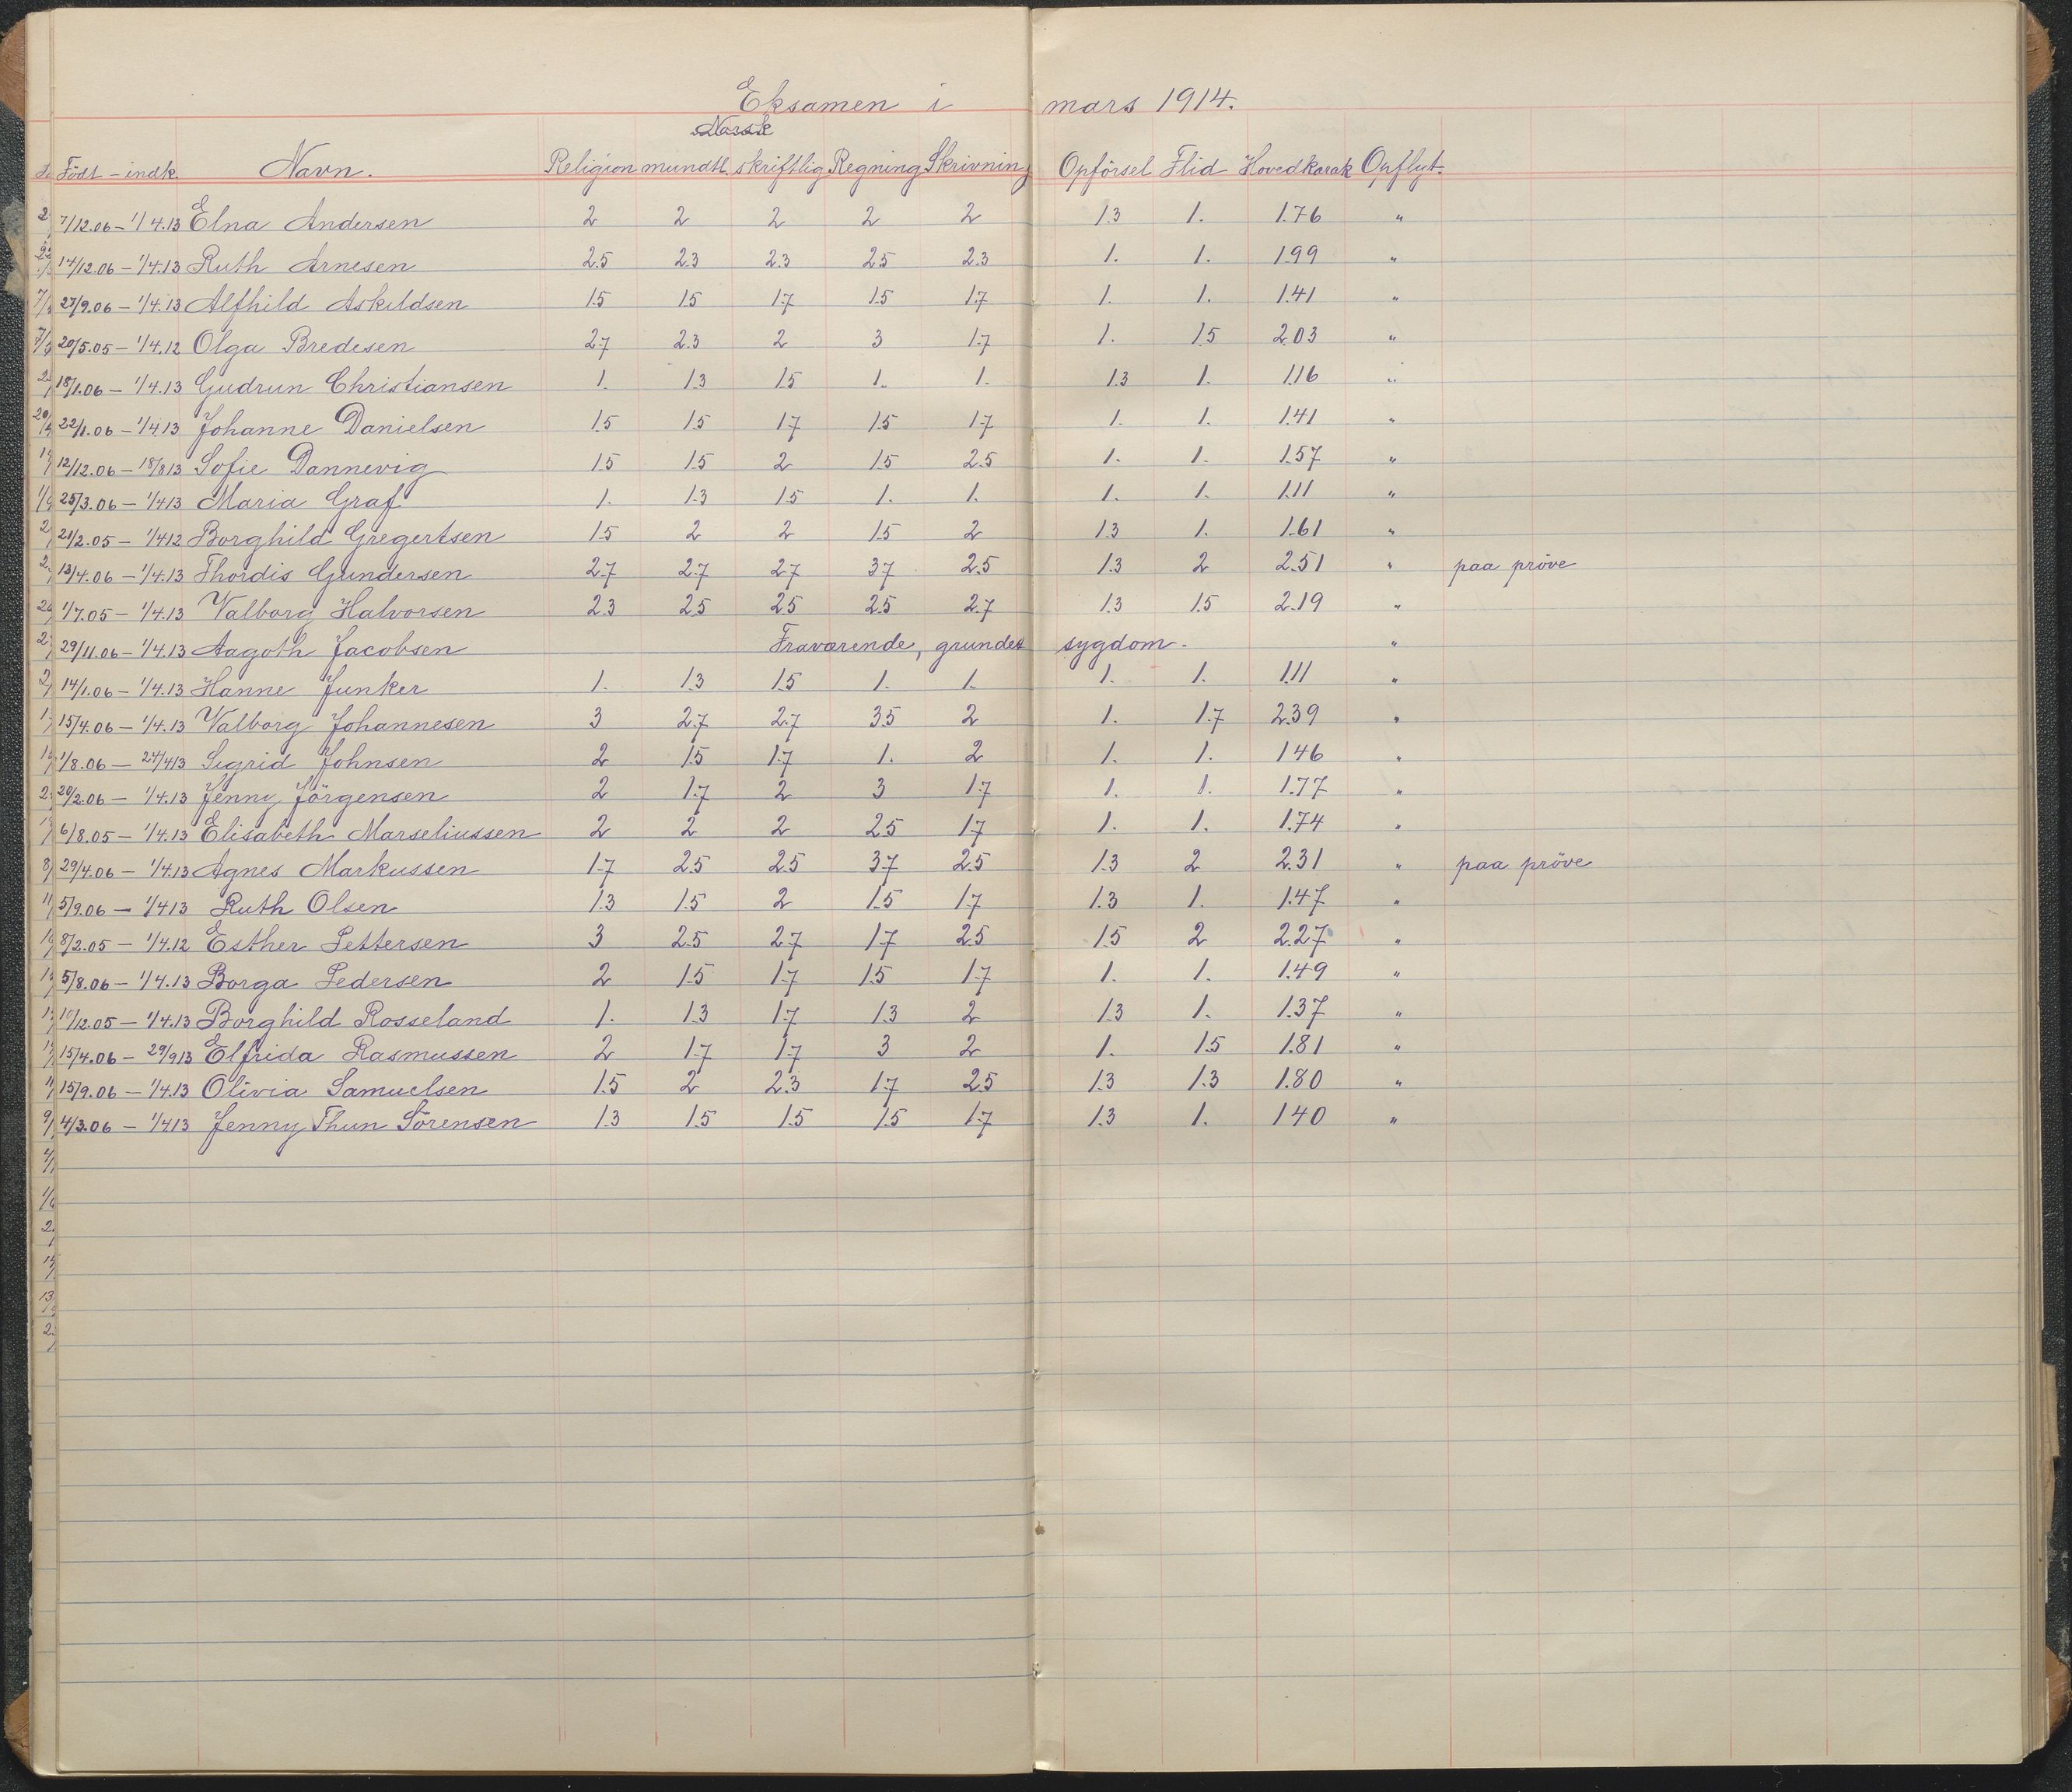 Eksamen i mars 1914.
Norsk
Födt - indk. Navn. Religion mundtl. skriftlig Regning Skrivning Opförsel Flid Hovedkarak Opflyt.
7/12.06 - 1/4.13 Elna Andersen 2 2 2 2 2 1.3 1. 1.76 "
14/12.06 - 1/4.13 Ruth Arnesen 2.5 2.3 2.3 2.5 2.3 1. 1. 1.99 "
27/9.06 - 1/4.13 Alfhild Askildsen 1.5 1.5 1.7 1.5 1.7 1. 1. 1.41 "
20/5.05 - 1/4.12 Olga Bredesen 2.7 2.3 2 3 1.7 1. 1.5 2.03 "
18/1.06 - 1/4.13 Gudrun Christiansen 1. 1.3 1.5 1. 1. 1.3 1. 1.16 "
22/1.06 - 1/4.13 Johanne Danielsen 1.5 1.5 1.7 1.5 1.7 1. 1. 1.41 "
12/12.06 - 18/8.13 Sofie Dannevig 1.5 1.5 2 1.5 2.5 1. 1. 1.57 "
25/3.06 - 1/4.13 Maria Graf 1. 1.3 1.5 1. 1. 1. 1. 1.11 "
21/2.05 - 1/4.12 Borghild Gregertsen 1.5 2 2 1.5 2 1.3 1. 1.61 "
13/4.06 - 1/4.13 Thordis Gundersen 2.7 2.7 2.7 3.7 2.5 1.3 2 2.51 " paa pröve
1/7.05 - 1/4.13 Valborg Halvorsen 2.3 2.5 2.5 2.5 2.7 1.3 1.5 2.19 "
29/11.06 - 1/4.13 Aagoth Jacobsen Fraværende, grundet sygdom. "
14/1.06 - 1/4.13 Hanne Junker 1. 1.3 1.5 1. 1. 1. 1. 1.11 "
15/4.06 - 1/4.13 Valborg Johannesen 3 2.7 2.7 3.5 2 1. 1.7 2.39 "
1/8.06 - 24/4.13 Sigrid Johnsen 2 1.5 1.7 1. 2 1. 1. 1.46 "
20/2.06 - 1/4.13 Jenny Jörgensen 2 1.7 2 3 1.7 1. 1. 1.77 "
6/8.05 - 1/4.13 Elisabeth Marseliussen 2 2 2 2.5 1.7 1. 1. 1.74 "
29/4.06 - 1/4.13 Agnes Markussen 1.7 2.5 2.5 3.7 2.5 1.3 2 2.31 " paa pröve
5/9.06 - 1/4.13 Ruth Olsen 1.3 1.5 2 1.5 1.7 1.3 1. 1.47 "
8/2.05 - 1/4.12 Esther Pettersen 3 2.5 2.7 1.7 2.5 1.5 2 2.27 "
5/8.06 - 1/4.13 Borga Pedersen 2 1.5 1.7 1.5 1.7 1. 1. 1.49 "
10/12.05 - 1/4.13 Borghild Rosseland 1. 1.3 1.7 1.3 2 1.3 1. 1.37 "
15/4.06 - 29/9.13 Elfrida Rasmussen 2 1.7 1.7 3 2 1. 1.5 1.81 "
15/9.06 - 1/4.13 Olivia Samuelsen 1.5 2 2.3 1.7 2.5 1.3 1.3 1.80 "
4/3.06 - 1/4.13 Jenny Thun Sörensen 1.3 1.5 1.5 1.5 1.7 1.3 1. 1.40 "